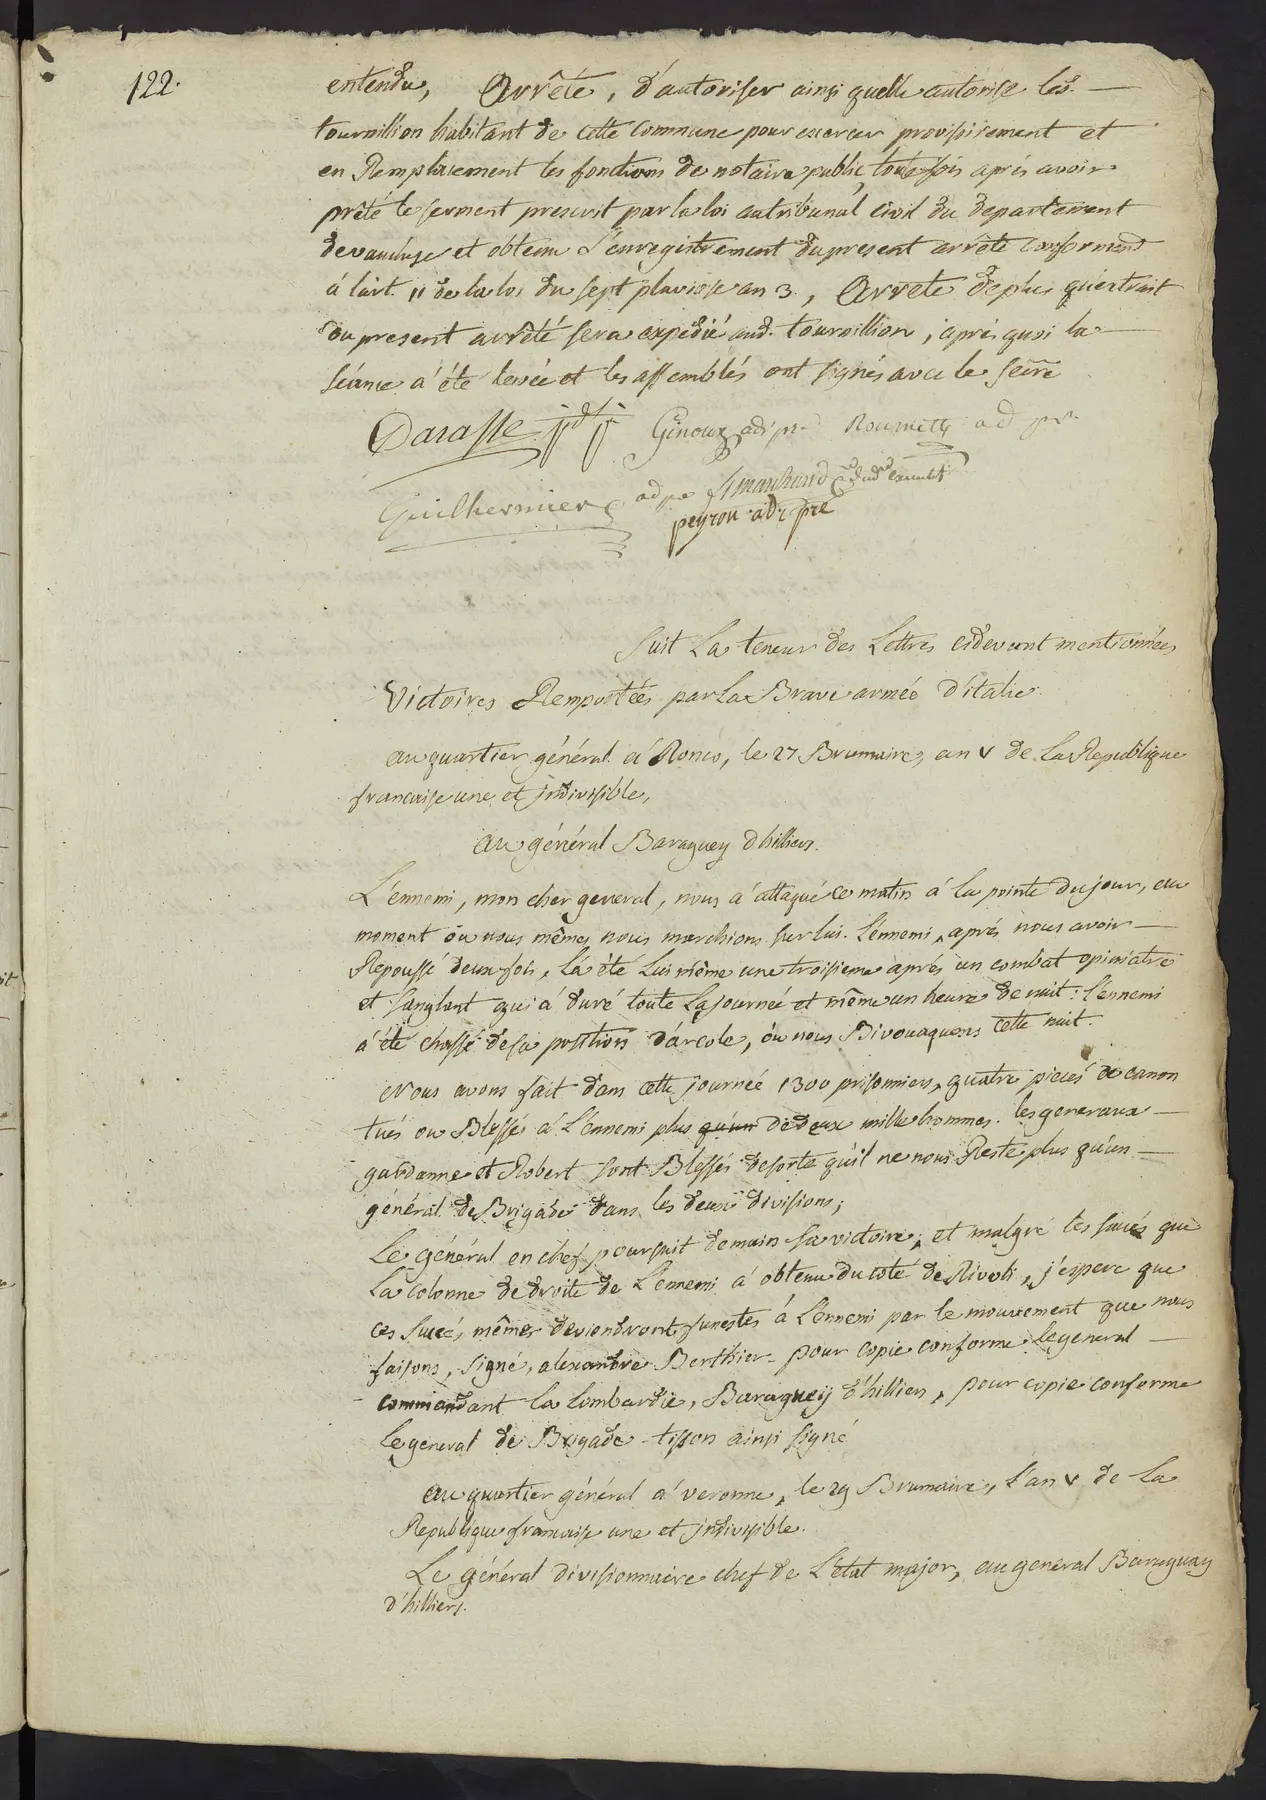 122.
entendu, Arrête, d'autoriser ainsi quelle autorise led.
tourvillion habitant de cette Commune pour exercer provisoirement et
en Remplacement les fonctions de notaire public, toutefois après avoir
prété le serment prescrit par la loi au tribunal civil du departement
devaucluse et obtenu l'enregistrement dupresent arrêté conformemt
á l'art. 11 de la loi du sept pluviose an 3, Arrete deplus qu'extrait
du present arrêté sera expédié aud. tourvillion, après quoi la
séance á été levée et les assemblés ont signés avec le secre
Darasse Ginoux adj pr Roumette ad pr
Guilhermier ad pr Marchand
peyron adj pre
Suit La teneur des Lettres cidevant mentionnées
Victoires Remportées par La Brave armée d'italie.
au quartier général á Ronco, le 27 Brumaire, an V de La Republique
francaise une et indivisible,
au général Baraguey dhilliers.
L'ennemi, mon cher general, nous á attaqué ce matin á la pointe du jour, au
moment óu nous mêmes nous marchions sur lui. L'énnemi, aprés nous avoir
Repoussé deux fois, L'á été Lui même une troisieme aprés un combat opiniatre
et sanglant qui á duré toute La journeé et même un heure de nuit: l'énnemi
á été chassé de sa position d'árcole, óu nous Bivouaquons cette nuit.
Nous avons fait dans cette journeé 1300 prisonniers, quatre pieces de canon
tués ou Blessés á L'énnemi plus qu'un de deux mille hommes. les generaux
gardanne et Robert sont Blessés desorte qu'il ne nous Reste plus qu'un
général de Brigade dans les deux divisions;
Le général en chef poursuit demain sa victoire; et malgré les succés que
La Colonne de droite de L'énnemi á obtenu du coté de Rivoli, j'espere que
ces succés mêmes deviendront funestes á L'énnemi par le mouvement que nous
faisons, signé, alexandre Berthier - pour copie conforme Le general
commandant la Lombardie, Baraguey d'hilliers, pour copie conforme
Le general de Brigade tisson ainsi signé
au quartier général á veronne, le 29 Brumaire, L'an V de La
Republique francaise une et indivisible.
Le général divisionnaire chef de L'état major, au general Baraguay
d'hilliers.